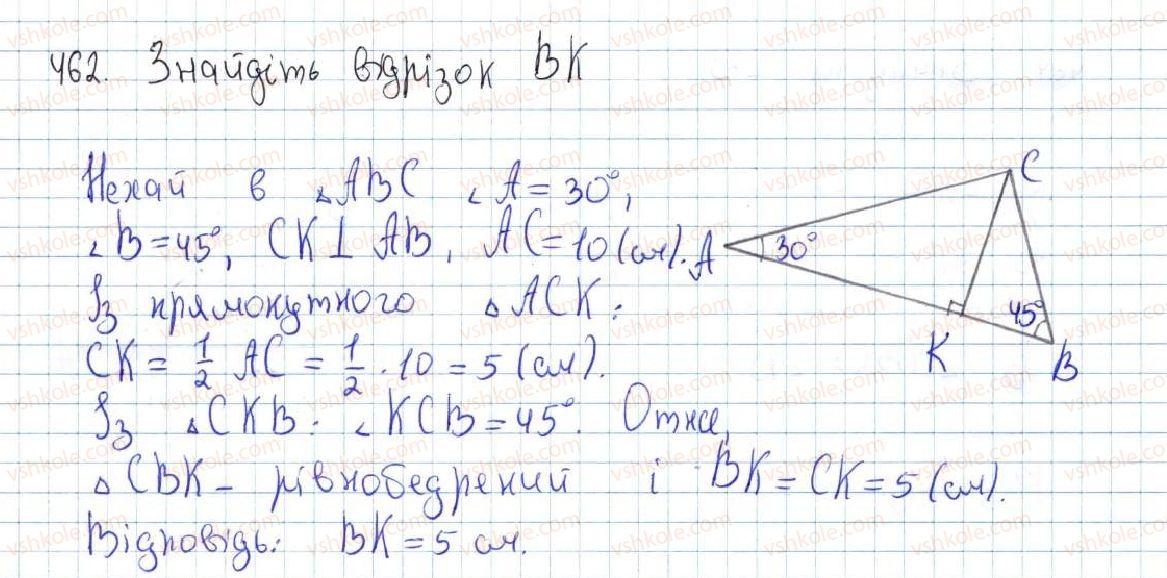 462. Знайдіть відрізок BK
Нехай в △ABC ∠A = 30°,
∠B = 45°, CK ⊥ AB, AC = 10 (см).
Із прямокутного △ACK:
CK = 1/2 AC = 1/2 · 10 = 5 (см).
Із △CKB: ∠KCB = 45°. Отже,
△CBK – рівнобедрений і BK = CK = 5 (см).
Відповідь: BK = 5 см.
C
A 30°
45°
K
B
vshkole.com